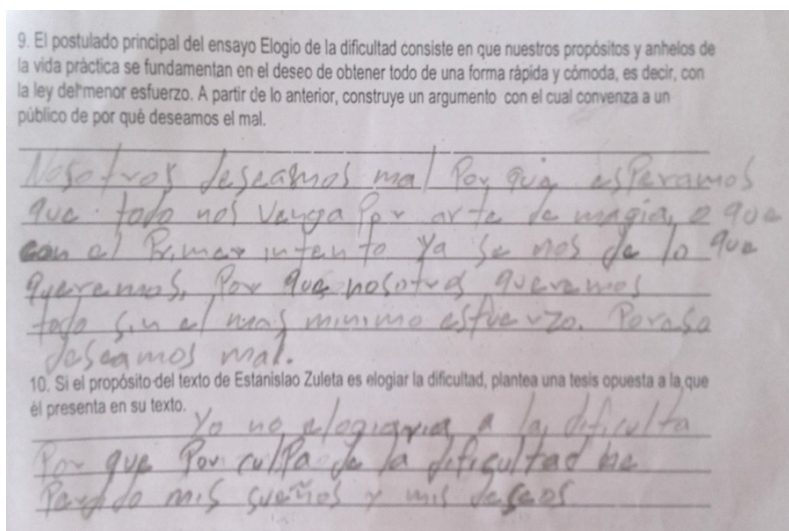 9. El postulado principal del ensayo Elogio de la dificultad consiste en que nuestros propósitos y anhelos de
la vida práctica se fundamentan en el deseo de obtener todo de una forma rápida y cómoda, es decir, con
la ley del menor esfuerzo. A partir de lo anterior, construye un argumento con el cual convenza a un
público de por qué deseamos el mal.
Nosotros deseamos mal Por que esperamos
que todo nos venga Por arte de magia, o que
con el Primer intento ya se nos de lo que
queremos, Por que nosotros queremos
todo sin el mas minimo esfuerzo. Poreso
deseamos mal.
10. Si el propósito del texto de Estanislao Zuleta es elogiar la dificultad, plantea una tesis opuesta a la que
él presenta en su texto.
Yo no elogiaria a la dificulta
Por que Por culpa de la dificultad he
Perdido mis sueños y mis deseos